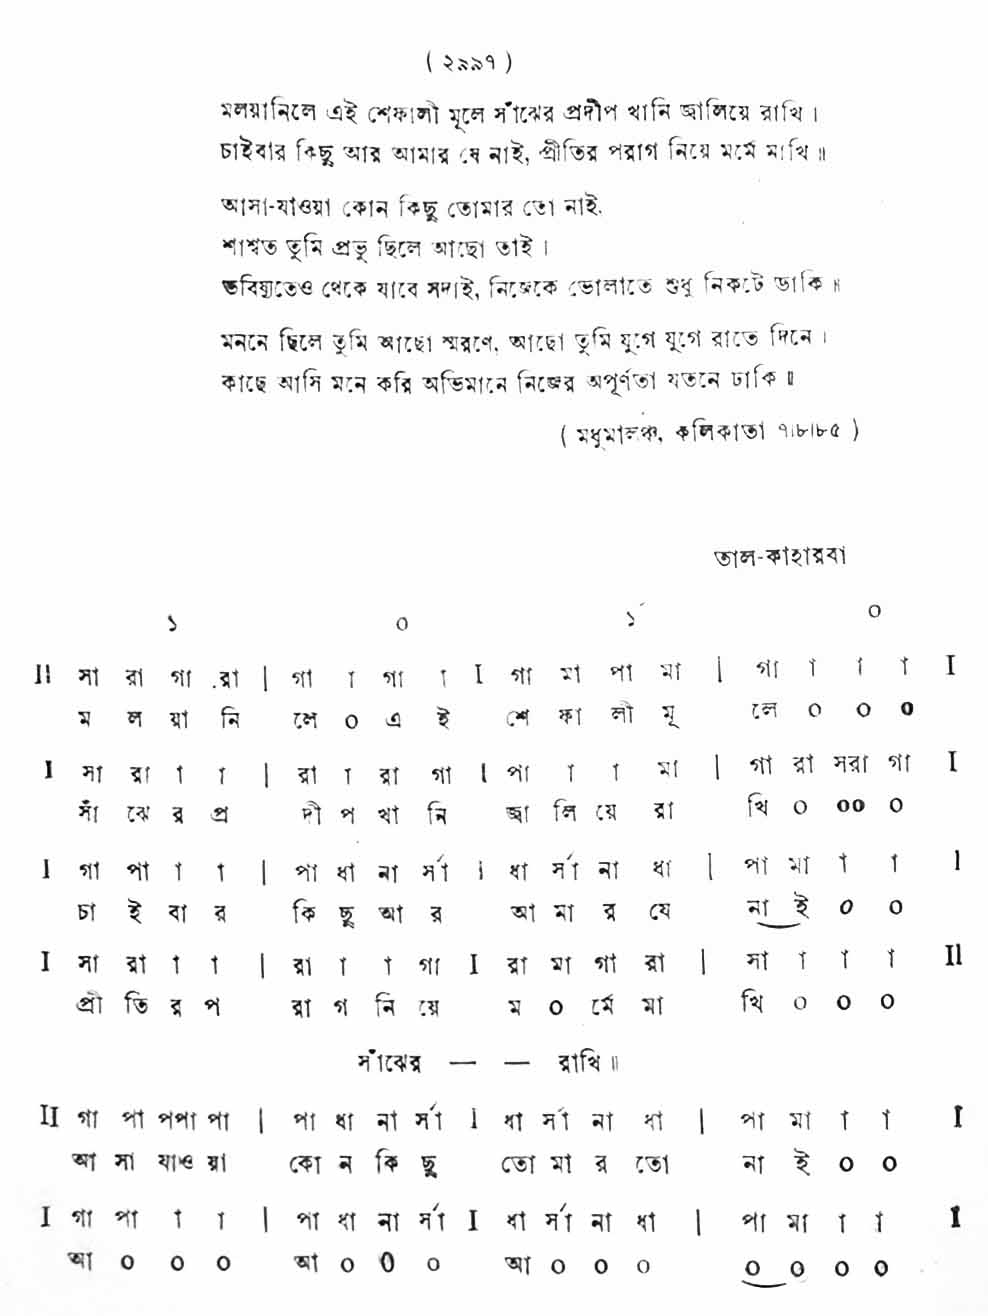 ( ২৯৯৭ )
মলয়ানিলে এই শেফালী মূলে সাঁঝের প্রদীপ খানি জ্বালিয়ে রাখি ।
চাইবার কিছু আর আমার যে নাই, প্রীতির পরাগ নিয়ে মর্মে মাখি ॥
আসা-যাওয়া কোন কিছু তোমার তো নাই.
শাশ্বত তুমি প্রভু ছিলে আছো তাই ।
ভবিষ্যতেও থেকে যাবে সদাই, নিজেকে ভোলাতে শুধু নিকটে ডাকি ॥
মননে ছিলে তুমি আছো স্মরণে, আছো তুমি যুগে যুগে রাতে দিনে ।
কাছে আসি মনে করি অভিমানে নিজের অপূর্ণতা যতনে ঢাকি ॥
( মধুমালঞ্চ, কলিকাতা ৭।৮।৮৫ )
তাল-কাহারবা
১ ০ ১´ ০
II সা রা গা রা | গা া গা া I গা মা পা মা | গা া া া I
ম ল য়া নি লে ০ এ ই শে ফা লী মূ লে ০ ০ ০
I সা রা া া | রা া রা গা I পা া া মা | গা রা সরা গা I
সাঁ ঝে র প্র দী প খা নি জ্বা লি য়ে রা খি ০ ০০ ০
I গা পা া া | পা ধা না র্সা I ধা র্সা না ধা | পা মা া া I
চা ই বা র কি ছু আ র আ মা র যে না ই ০ ০
I সা রা া া | রা া া গা I রা মা গা রা | সা া া া II
প্রী তি র প রা গ নি য়ে ম ০ র্মে মা খি ০ ০ ০
সাঁঝের — — রাখি ॥
II গা পা পপা পা | পা ধা না র্সা I ধা র্সা না ধা | পা মা া া I
আ সা যাও য়া কো ন কি ছু তো মা র তো না ই ০ ০
I গা পা া া | পা ধা না র্সা I ধা র্সা না ধা | পা মা া া I
আ ০ ০ ০ আ ০ ০ ০ আ ০ ০ ০ ০ ০ ০ ০